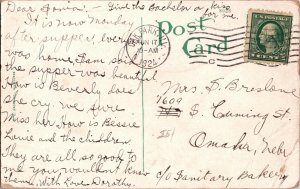 Dear Fonia: - Give the Bachelor a kiss
for me.
It is now Monday
after supper, every
was home, Sam said
the supper was beautiful
How is Beverly does
she cry, we sure
Miss her How is Bessie
Louie and the children,
They are all so good to
me you wouldn't know
them, With love, Dorothy.
POST
CARD
JUN 17
5 - AM
1924
Mrs. S. Breslow
1609
S. Cuming St.
Omaha, Nebr
c/o Sanitary Bakery